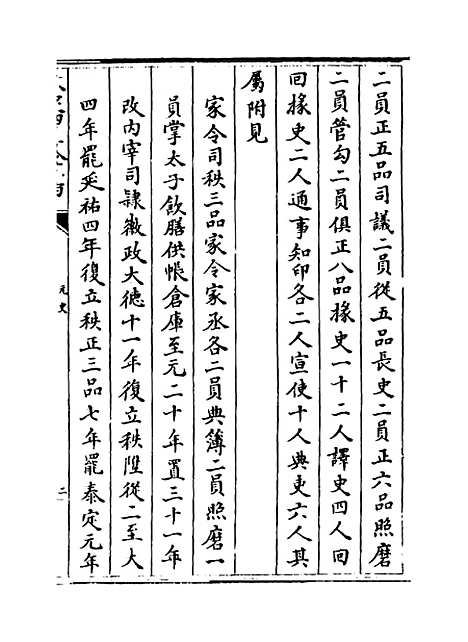 二員正五品司議二員從五品長史二員正六品照磨
二員管勾二員俱正八品掾史一十二人譯史四人回
回掾史二人通事知印各二人宣使十人典吏六人其
屬附見
家令司秩三品家令家丞各二員典簿二員照磨一
員掌太子飲膳供帳倉庫至元二十年置三十一年
改內宰司隸徽政大德十一年復立秩陞從二至大
四年罷延祐四年復立秩正三品七年罷泰定元年
元史
二